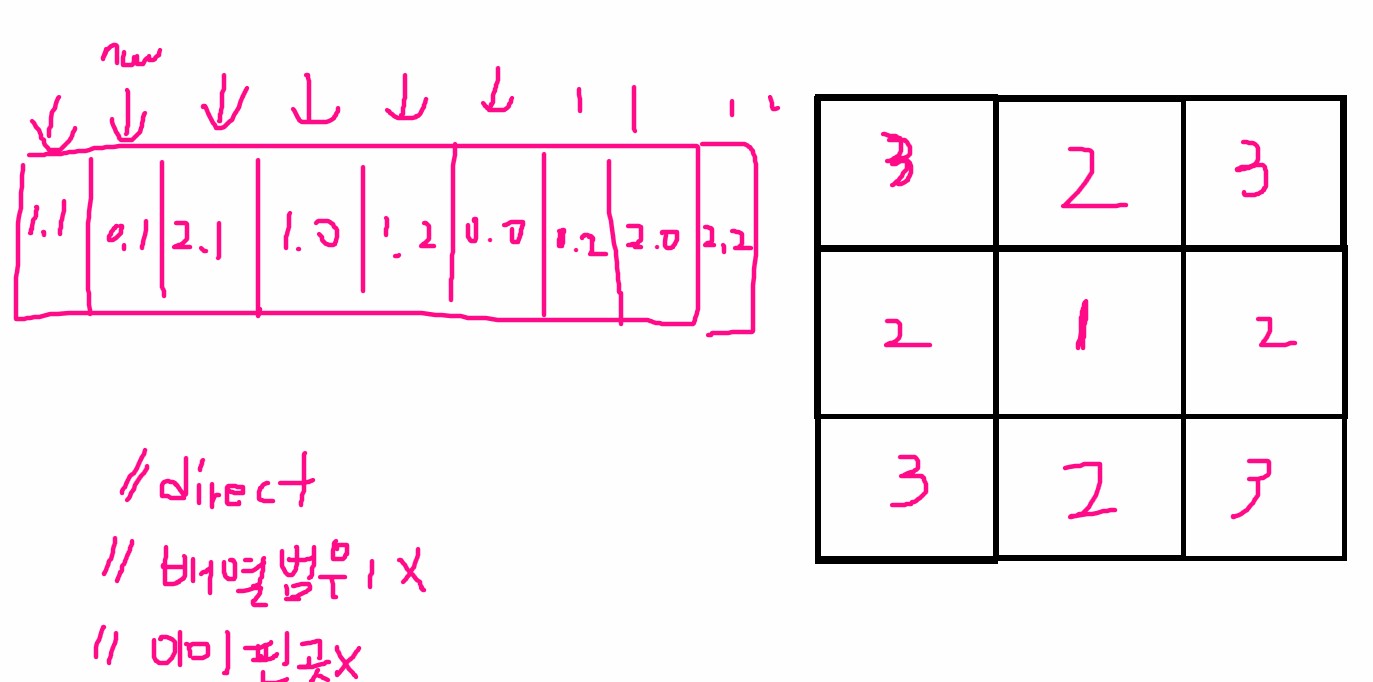 now
1.1 0.1 2.1 1.0 1.2 0.0 0.2 2.0 2,2
3 2 3
2 1 2
3 2 3
// direct
// 배열범위 X
// 이미 핀곳X